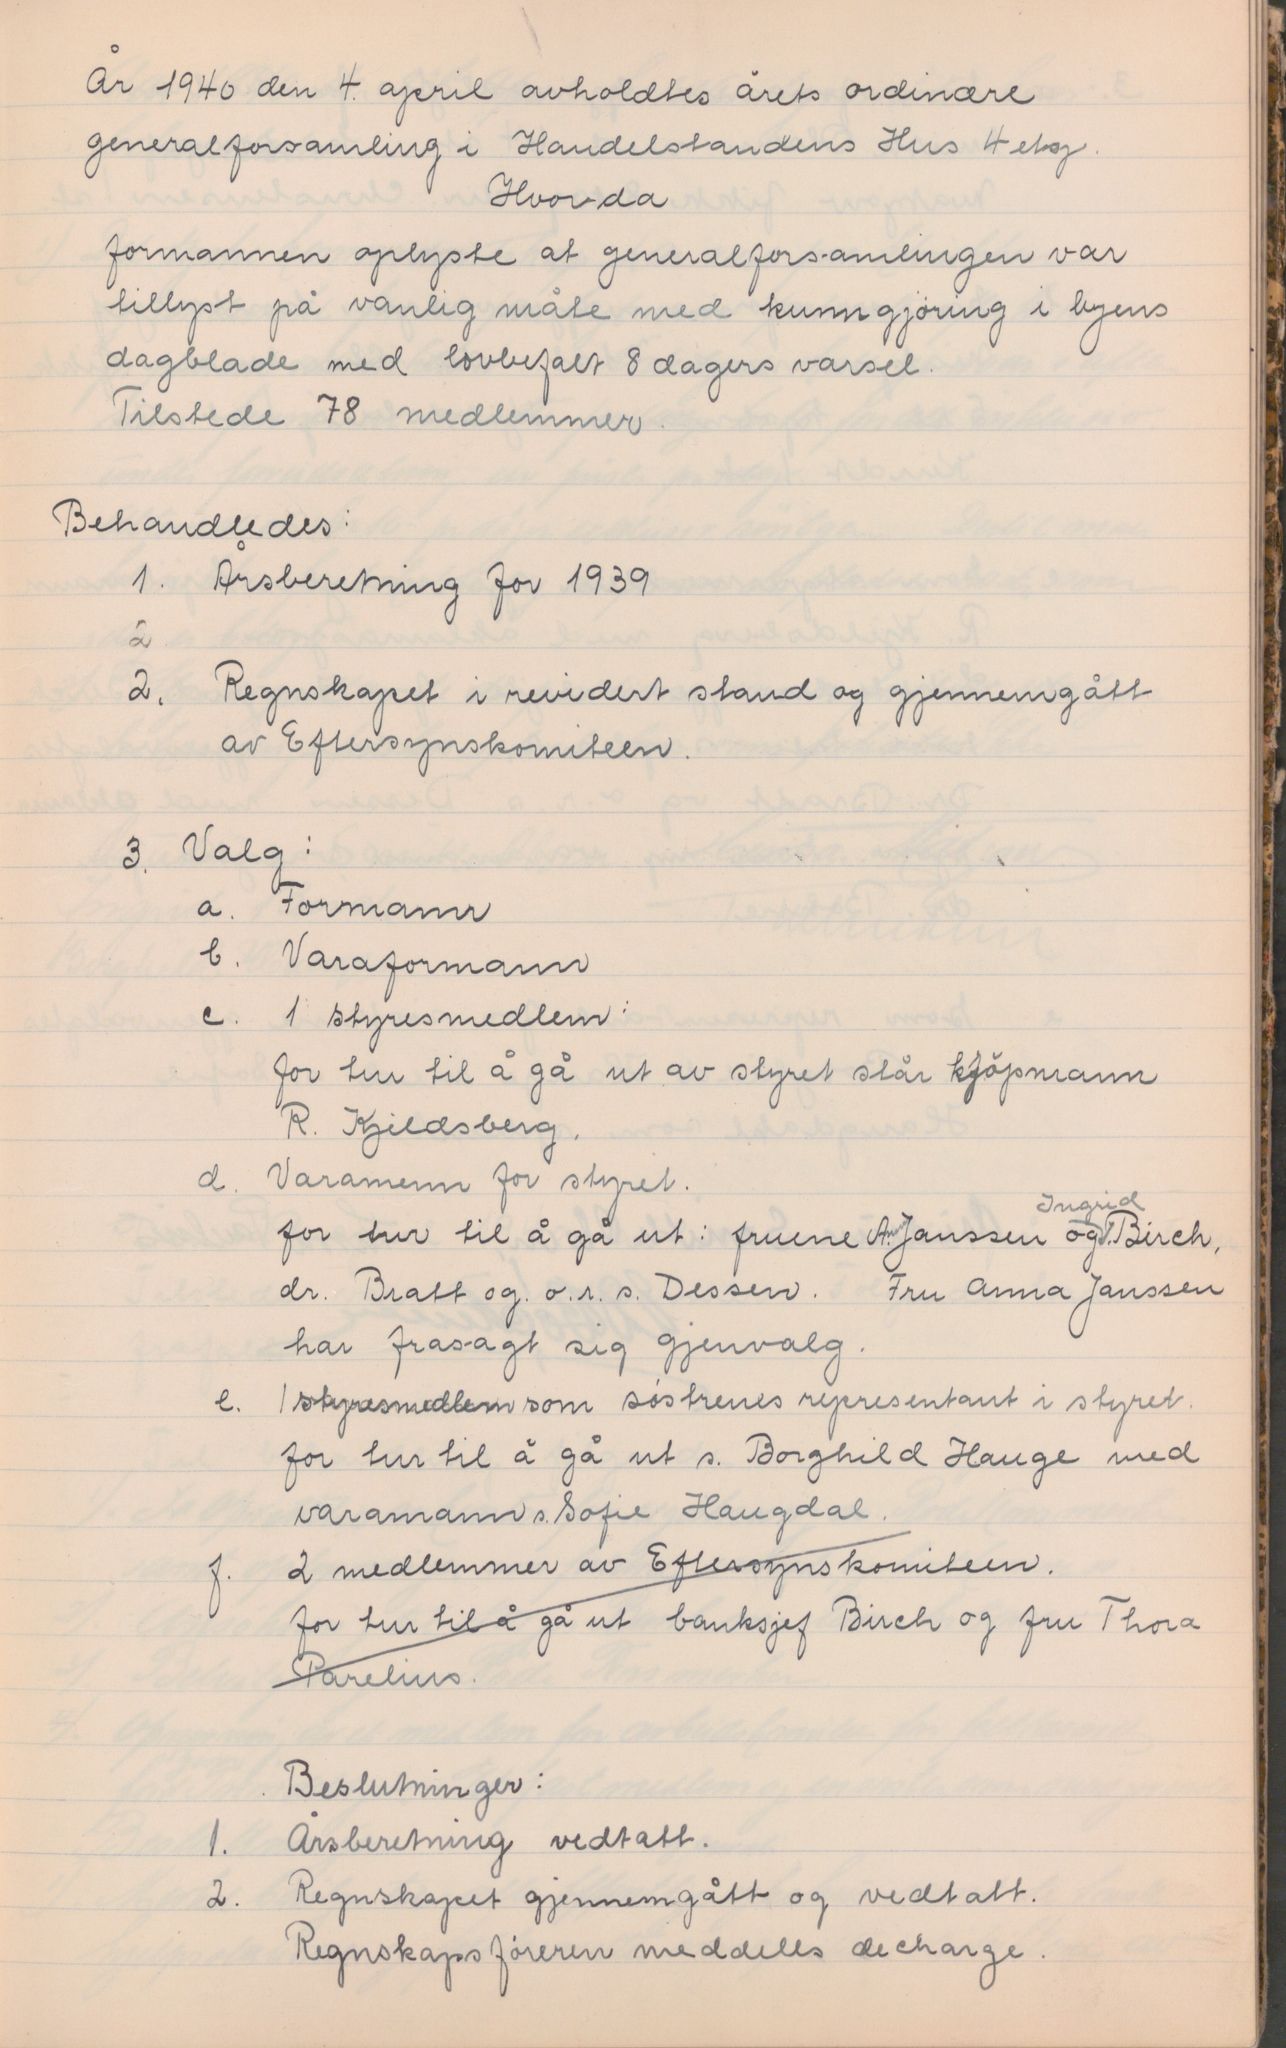 År 1940 den 4. april avholdtes årets ordinære
generalforsamling i Handelstandens Hus 4 etg.
Hvor da
formannen oplyste at generalforsamlingen var
tillyst på vanlig måte med kunngjøring i byens
dagblade med lovbefalt 8 dagers varsel.
Tilstede 78 medlemmer.
Behandledes:
1. Årsberetning for 1939
2
2. Regnskapet i revidert stand og gjennemgått
av Eftersynskomiteen.
3. Valg:
a. Formann
b. Varaformann
c. 1 styresmedlem:
for tur til å gå ut av styret står kjöpmann
R. Kjeldsberg.
d. Varamenn for styret.
Ingrid
for tur til å gå ut: fruene Janssen og Birch,
dr. Bratt og o.r.s. Dessen. Fru Anna Janssen
har frasagt sig gjenvalg.
e. 1 styresmedlem som söstrenes representant i styret.
for tur til å gå ut s. Borghild Hauge med
varamann s. Sofie Haugdal.
f. 2 medlemmer av Eftersynskomiteen.
for tur til å gå ut banksjef Birch og fru Thora
Parelius.
Beslutninger:
1. Årsberetning vedtatt.
2. Regnskapet gjennemgått og vedtatt.
Regnskapsföreren meddeles decharge.